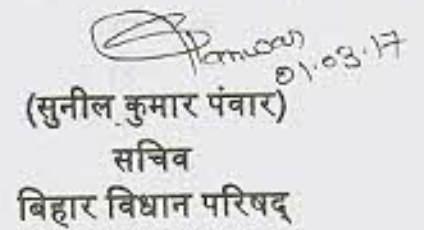 Panwar
01.03.17
(सुनील कुमार पंवार)
सचिव
बिहार विधान परिषद्